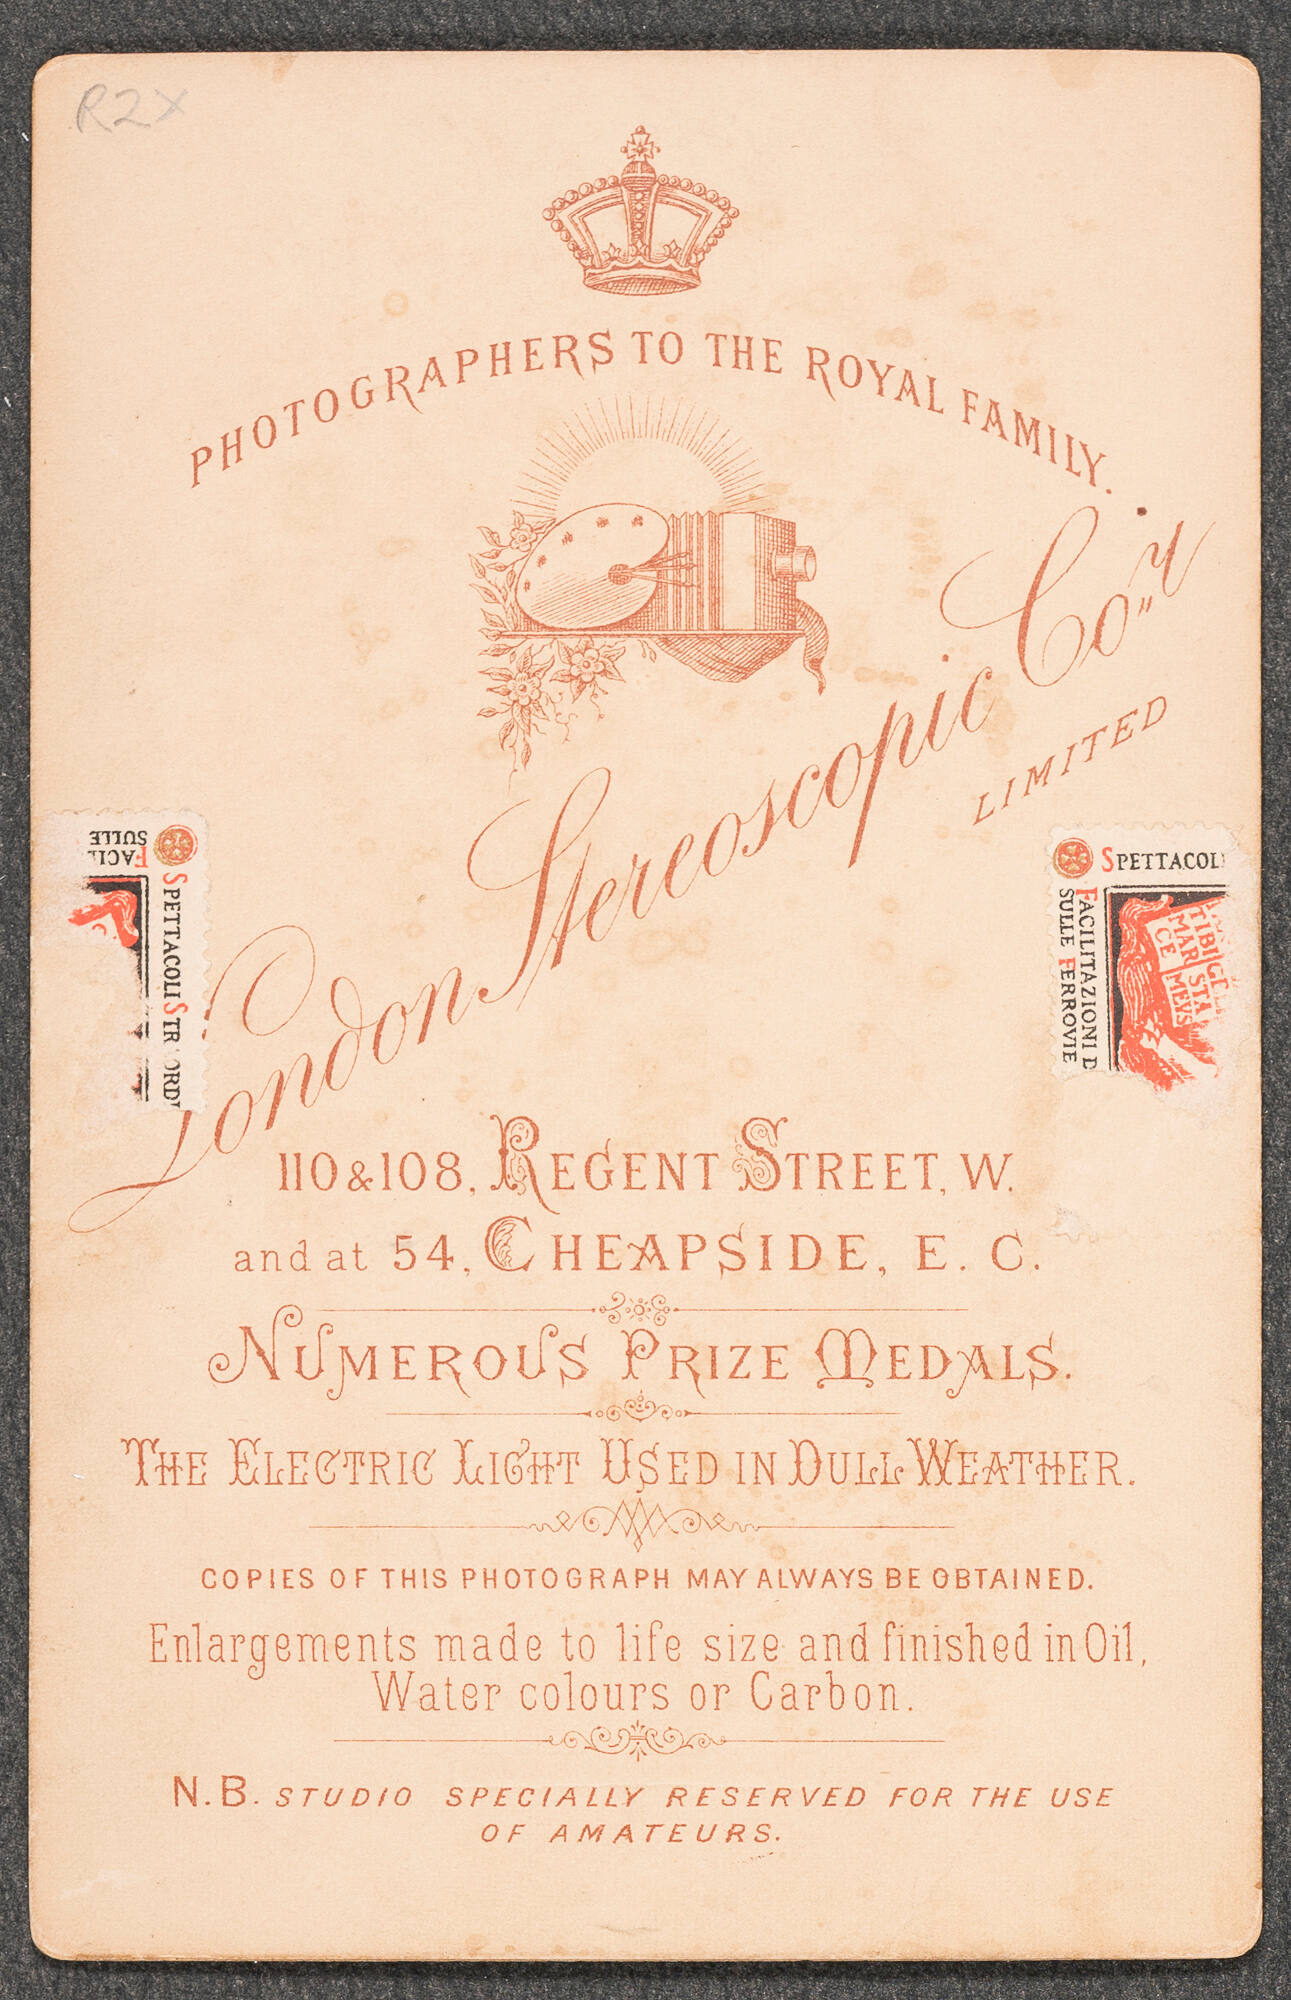 R2X
PHOTOGRAPHERS TO THE ROYAL FAMILY.
London Stereoscopic Co"y
LIMITED
SULLE
FACIL
SPETTACOLI STR ORDI
SPETTACOLI
FACILITAZIONI D
SULLE FERROVIE
TIBI
MAR STA
CE MEYS
110 & 108, REGENT STREET, W.
and at 54, CHEAPSIDE, E. C.
NUMEROUS PRIZE MEDALS.
THE ELECTRIC LIGHT USED IN DULL WEATHER.
COPIES OF THIS PHOTOGRAPH MAY ALWAYS BE OBTAINED.
Enlargements made to life size and finished in Oil,
Water colours or Carbon.
N.B. STUDIO SPECIALLY RESERVED FOR THE USE
OF AMATEURS.